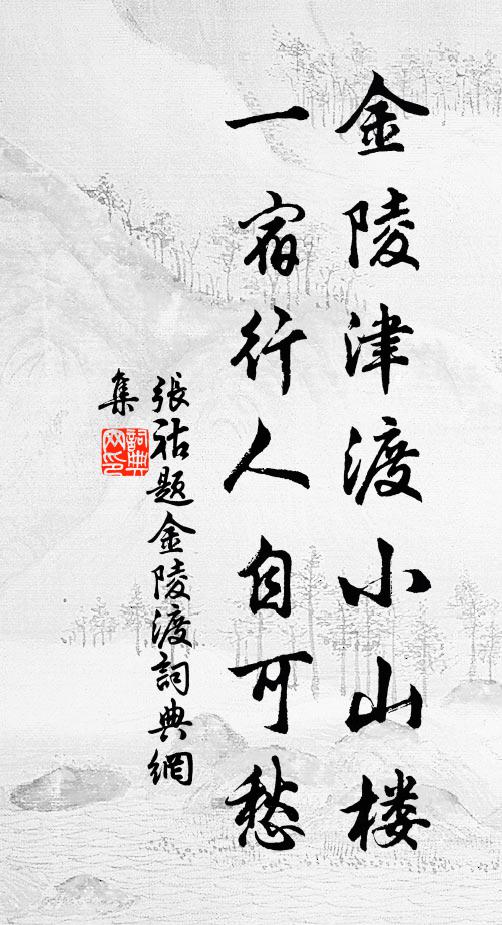 金陵津渡小山楼
一宿行人自可愁
張祜题金陵渡詞典網
集
詞典网印